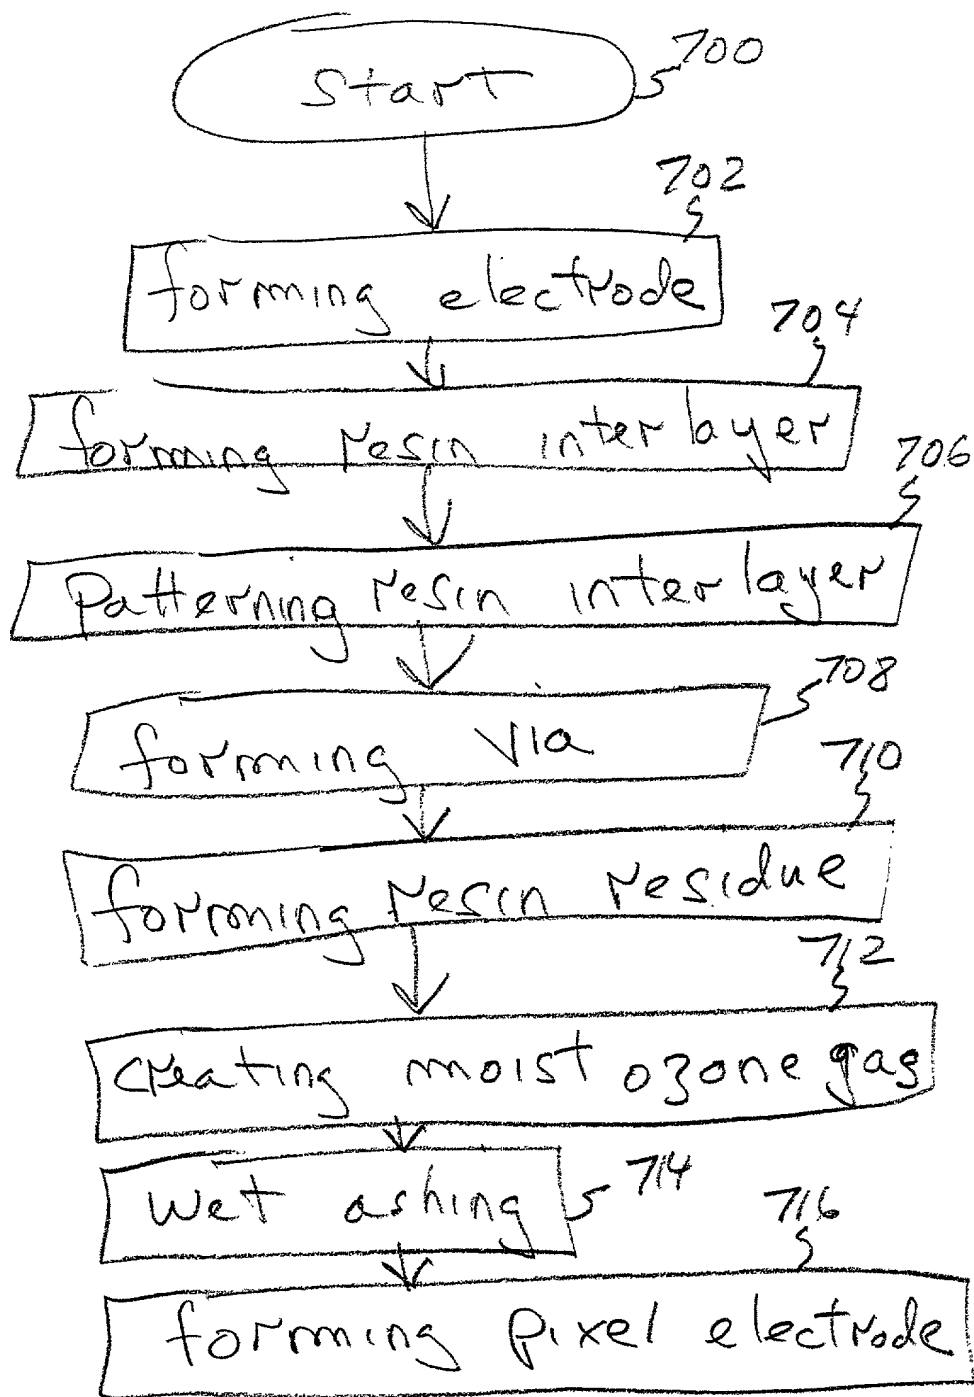 Start
700
702
forming electrode
704
forming resin interlayer
706
Patterning resin interlayer
708
forming via
710
forming resin residue
712
creating moist ozone gas
wet ashing
714
716
forming pixel electrode